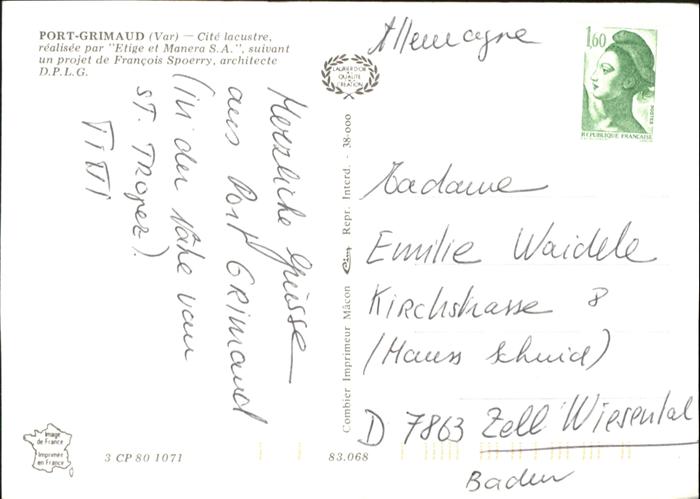 PORT-GRIMAUD (Var) — Cité lacustre,
réalisée par "Etige et Manera S.A.", suivant
un projet de François Spoerry, architecte
D.P.L.G.
Herzliche Grüsse
aus Port GRIMAUD
(in der Nähe von
ST. TROPEZ).
TITI
LAURIER D'OR
DE LA
QUALITÉ
CRÉATION
Combier Imprimeur Mâcon cim Repr. Interd. - 38-000
Allemagne
1,60
POSTES
REPUBLIQUE FRANÇAISE
Madame
Emilie Waidele
Kirchstrasse 8
(Hauss Schmid)
D 7863 Zell Wiesental
Baden
Image
de France
Imprimée
en France
3 CP 80 1071
83.068